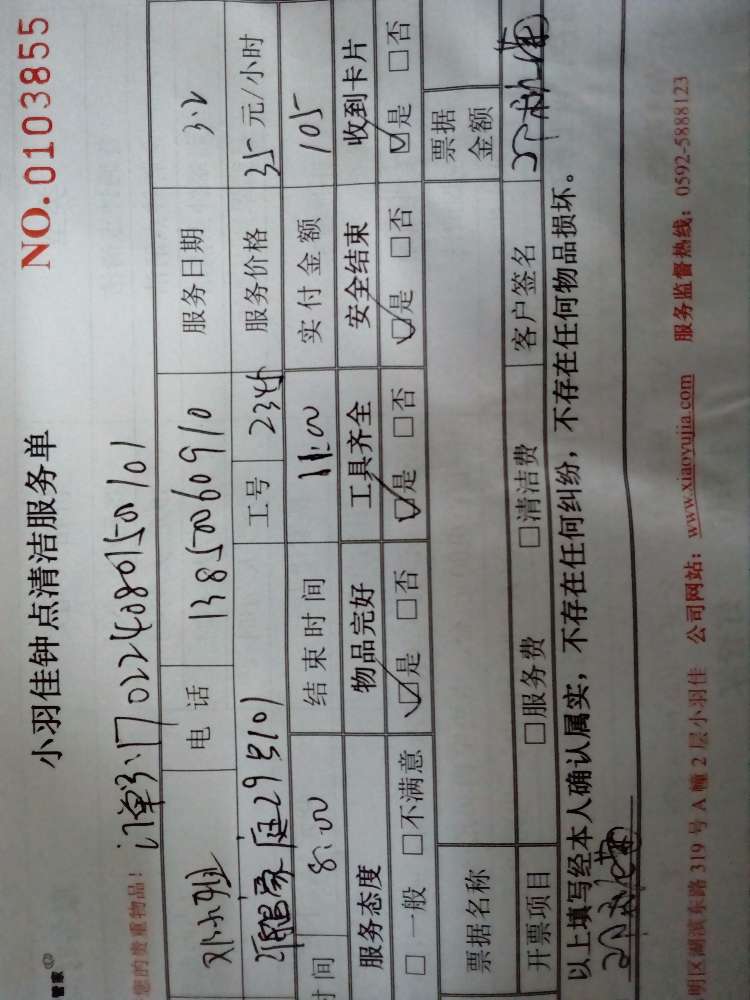 管家
小羽佳钟点清洁服务单 NO.0103855
您的贵重物品! 订单号:1702240801500101
刘小姐 电话 13850060910 服务日期 3.2
29号101 工号 2345 服务价格 35元/小时
时间 8:00 结束时间 11:00 实付金额 105
服务态度 物品完好 工具齐全 安全结束 收到卡片
□一般 □不满意 ☑是 □否 ☑是 □否 ☑是 □否 ☑是 □否
票据名称 票据金额
开票项目 □服务费 □清洁费 客户签名
以上填写经本人确认属实,不存在任何纠纷,不存在任何物品损坏。
明区湖滨东路319号A幢2层小羽佳 公司网站:www.xiaoyujia.com 服务监督热线:0592-5888123